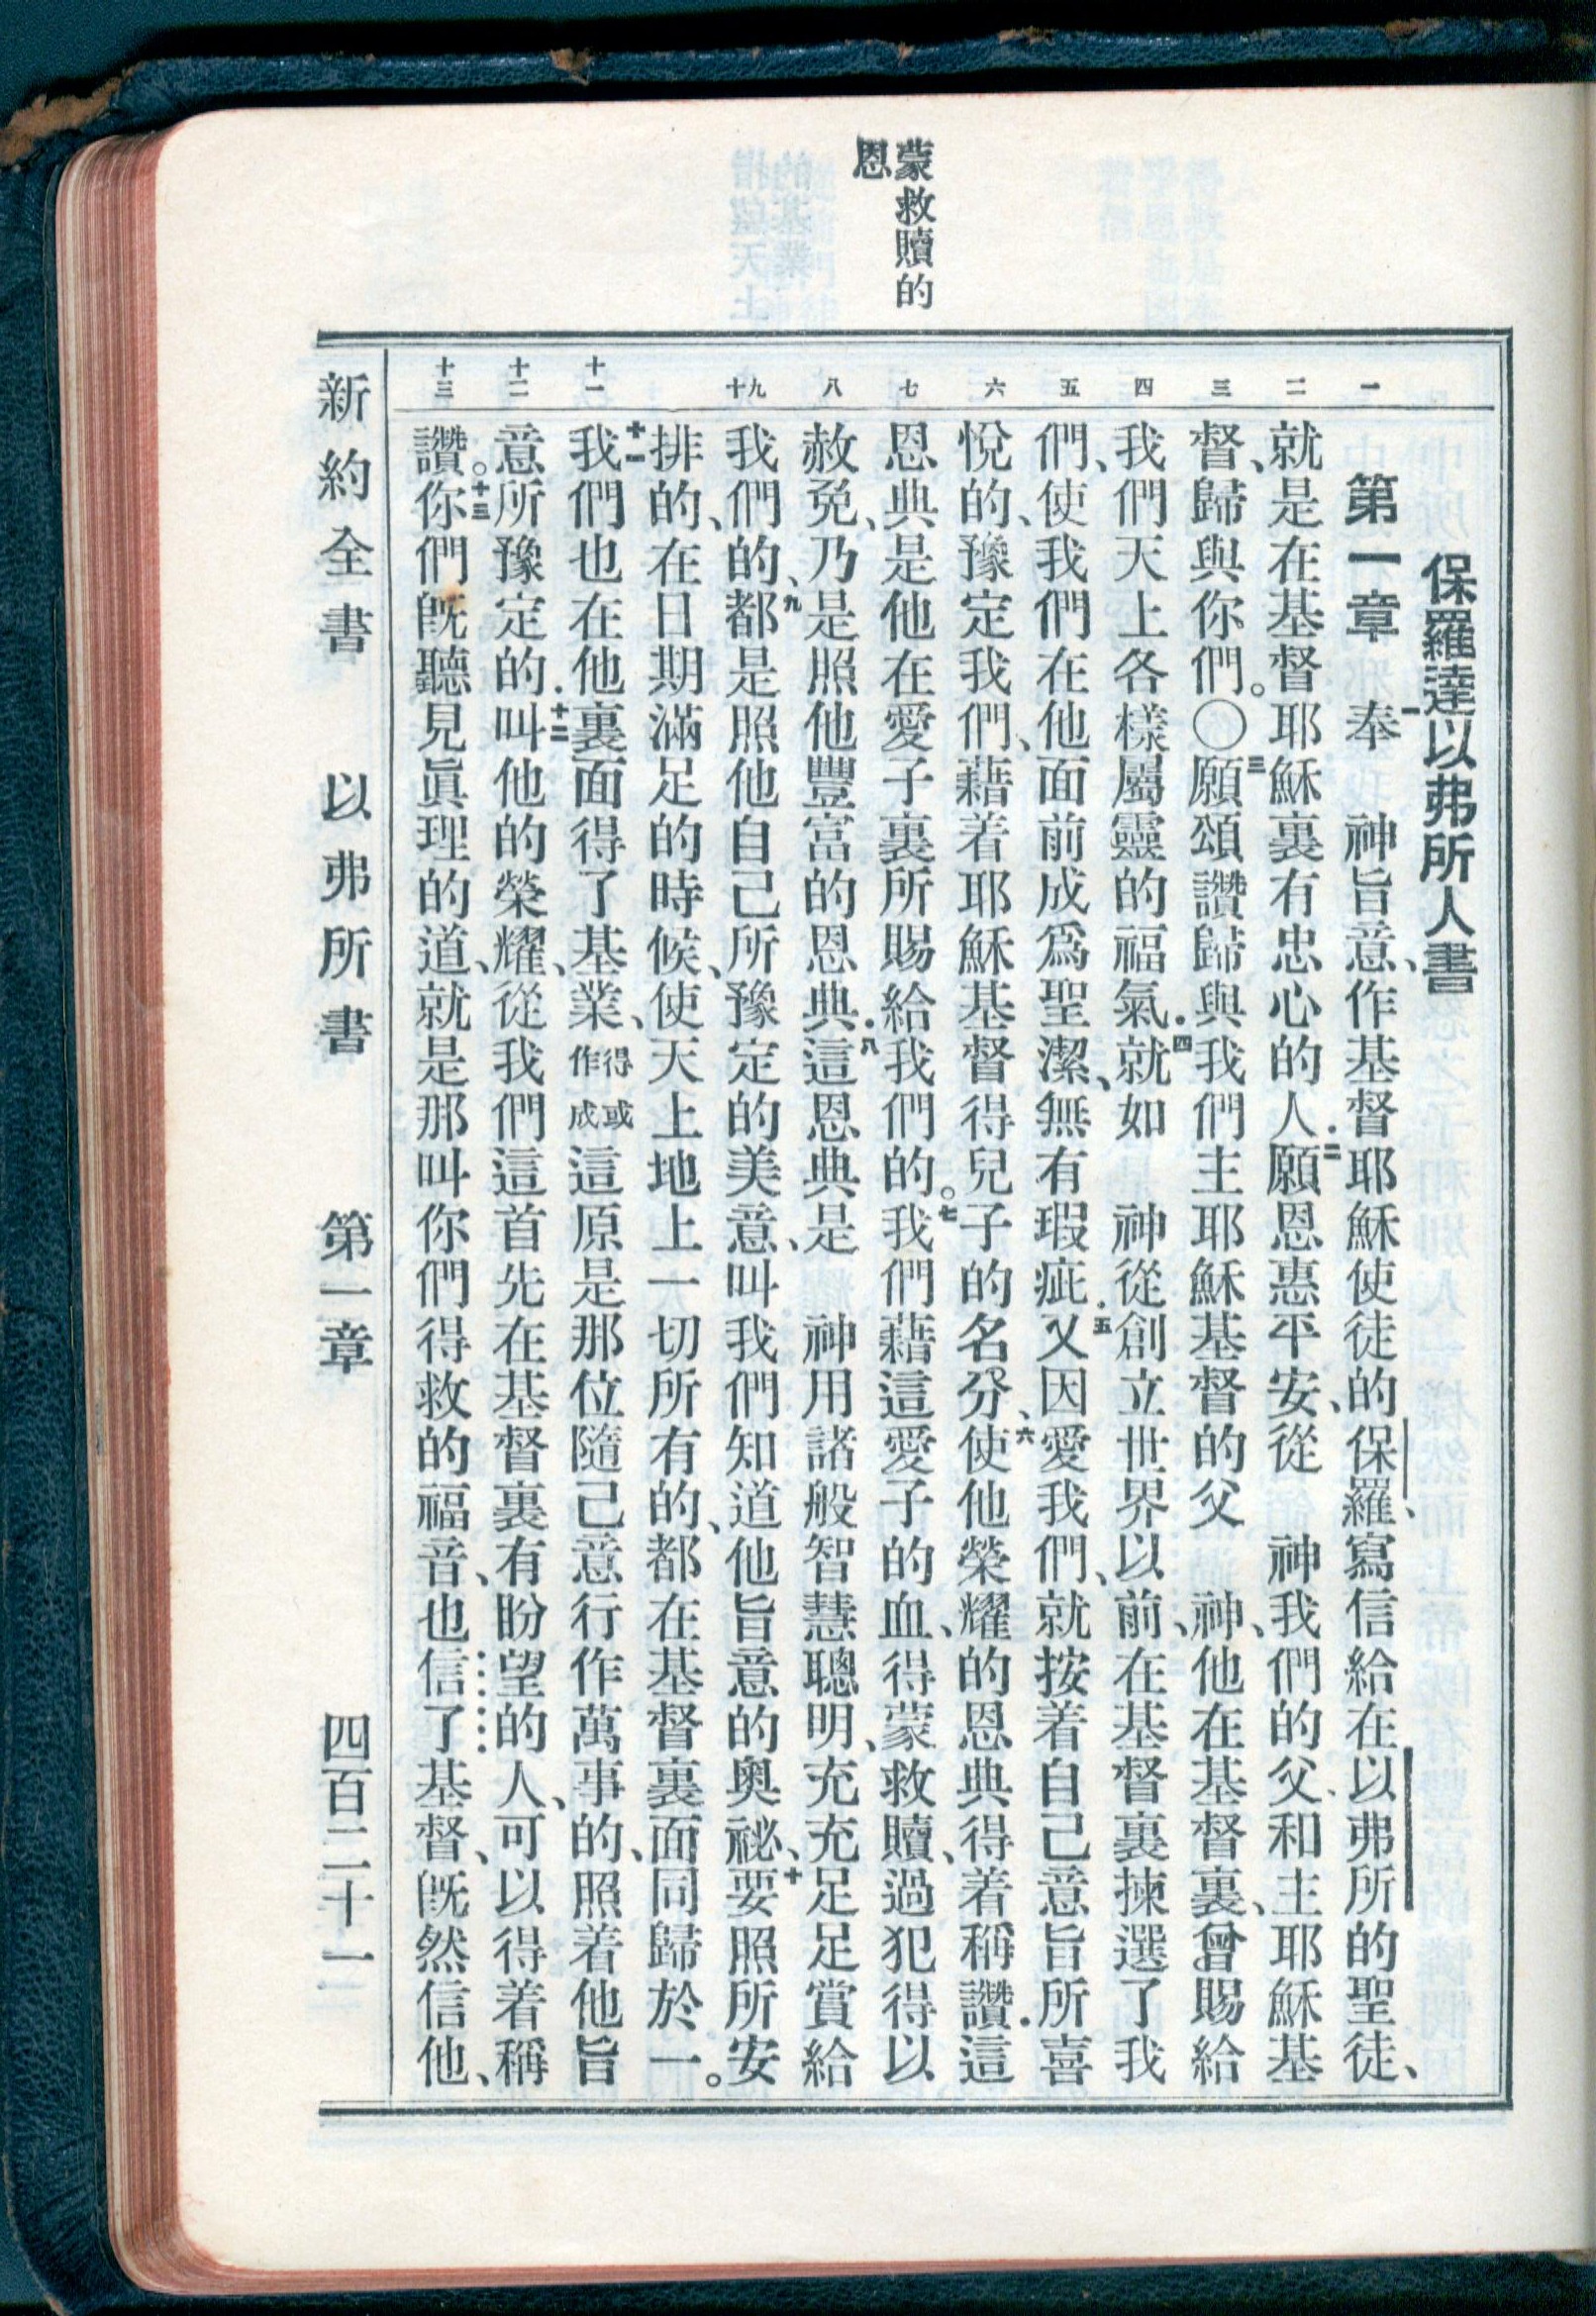 蒙救贖的
恩
一
二
三
四
五
六
七
八
十九
十一
十二
十三
保羅達以弗所人書
第一章　一奉　神旨意、作基督耶穌使徒的保羅、寫信給在以弗所的聖徒、
就是在基督耶穌裏有忠心的人．二願恩惠平安、從　神我們的父、和主耶穌基
督、歸與你們。〇三願頌讚歸與我們主耶穌基督的父　神、他在基督裏、曾賜給
我們天上各樣屬靈的福氣．四就如　神從創立世界以前、在基督裏揀選了我
們、使我們在他面前成爲聖潔、無有瑕疵．五又因愛我們、就按着自己意旨所喜
悅的、豫定我們、藉着耶穌基督得兒子的名分、六使他榮耀的恩典得着稱讚．這
恩典是他在愛子裏所賜給我們的。七我們藉這愛子的血、得蒙救贖、過犯得以
赦免、乃是照他豐富的恩典．八這恩典是　神用諸般智慧聰明、充充足足賞給
我們的、九都是照他自己所豫定的美意、叫我們知道他旨意的奧祕、十要照所安
排的、在日期滿足的時候、使天上地上一切所有的、都在基督裏面同歸於一。
十一我們也在他裏面得了基業、得或作成這原是那位隨己意行作萬事的、照着他旨
意所豫定的．十二叫他的榮耀、從我們這首先在基督裏有盼望的人、可以得着稱
讚。十三你們既聽見眞理的道、就是那叫你們得救的福音、也信了基督、既然信他、
新約全書　以弗所書　第一章　四百二十一